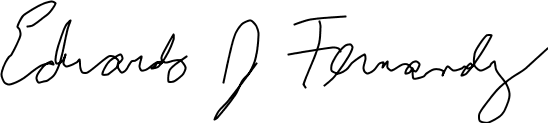 Eduardo J Fernandez